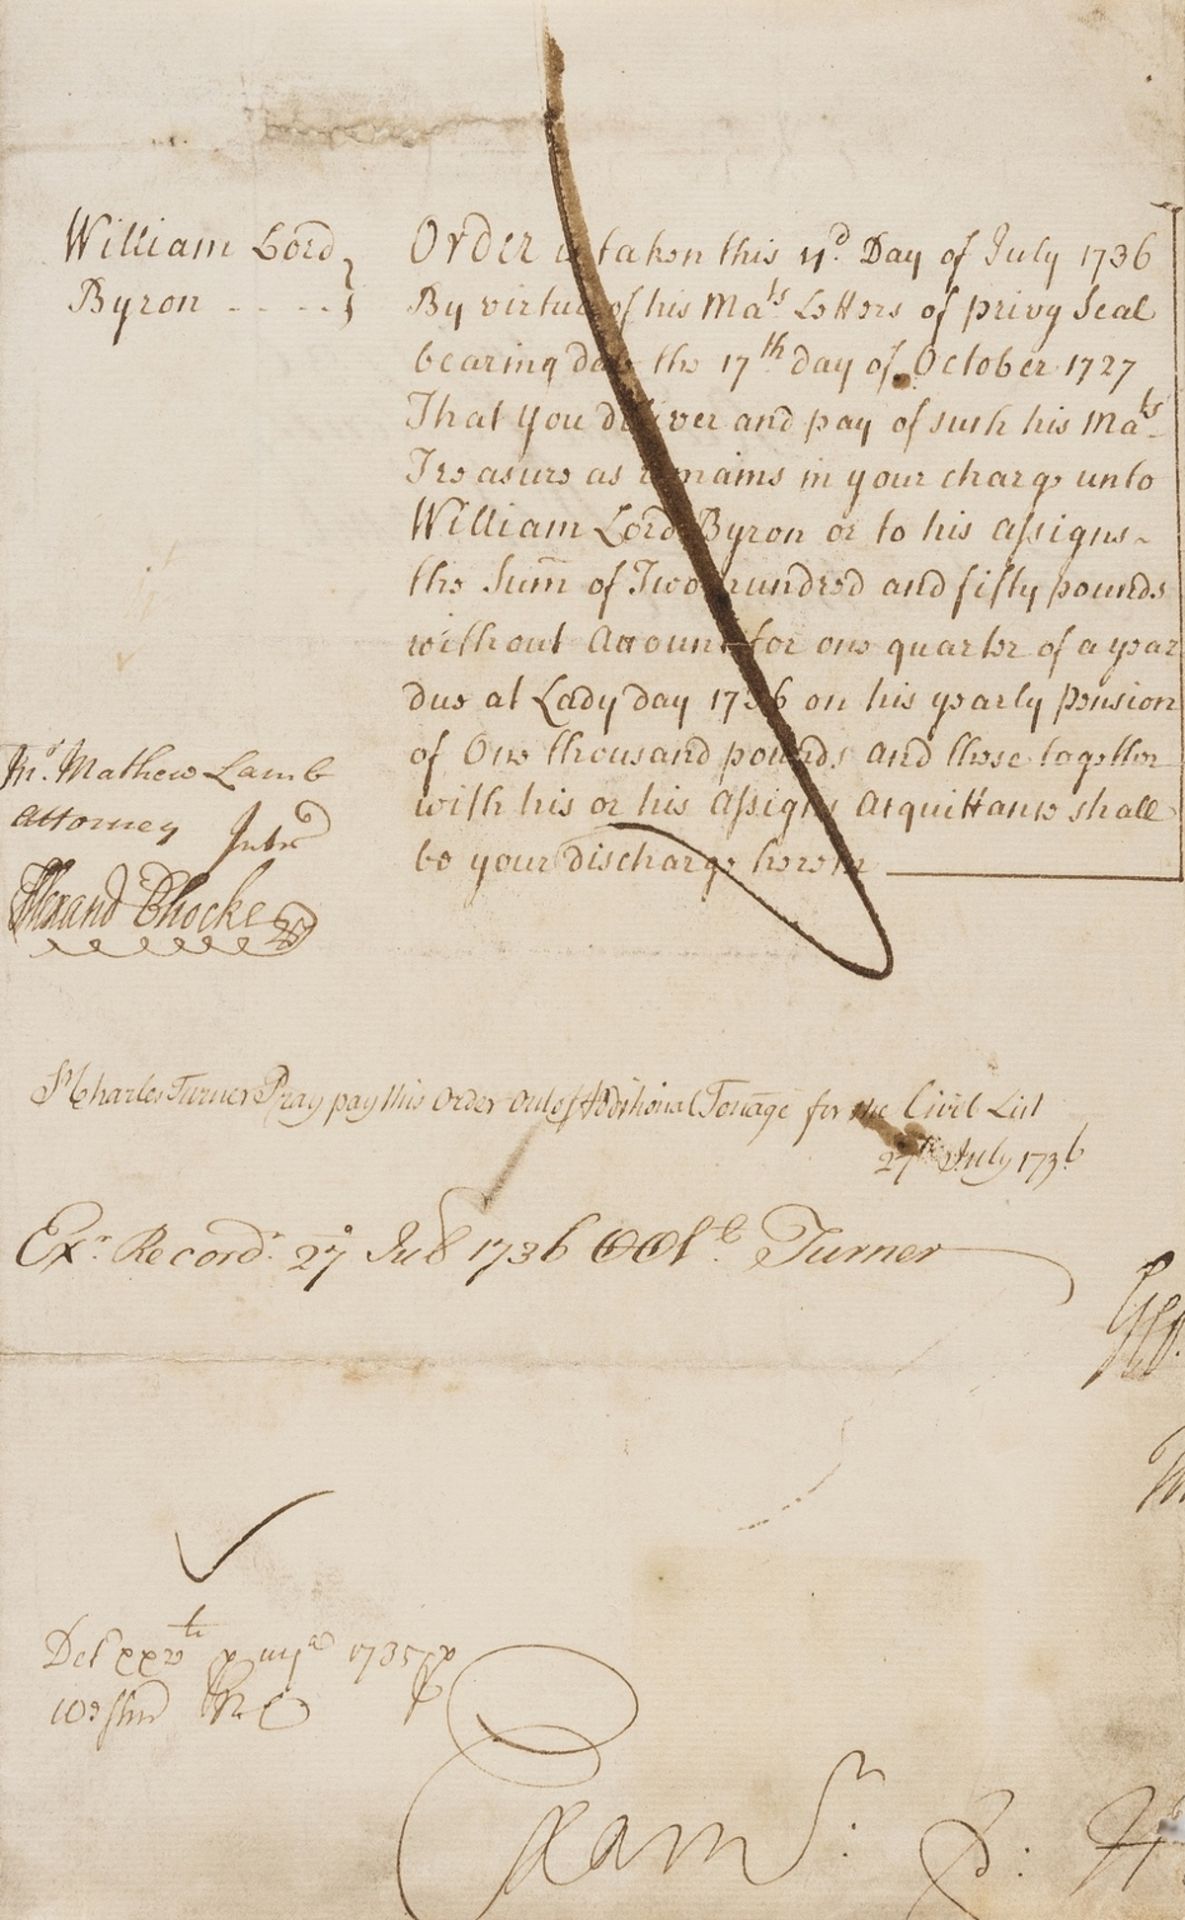 William Lord
Byron - - - -
Order is taken this 11d. Day of July 1736
By virtue of his Mats Letters of privy Seal
bearing date the 17th day of October 1727
That you deliver and pay of such his Mats
Treasure as remains in your charge unto
William Lord Byron or to his Assigns
the Sum of Two hundred and fifty pounds
without Account for one quarter of a year
due at Lady day 1736 on his yearly Pension
of One thousand pounds and these together
with his or his Assigns Acquittance shall
be your Discharge herein
Mr. Mathew Lamb
Attorney
Sr Charles Turner Pray pay this Order out of Additional Tonage for the Civil List
27th July 1736
Exr. Recordr. 27o July 1736 Turner
Geo.
1735
Exam